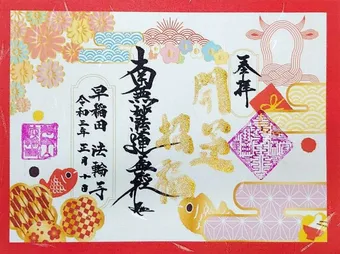 奉拝
開運
招福
南無妙法蓮華経
令和三年 正月十日
早稲田 法輪寺